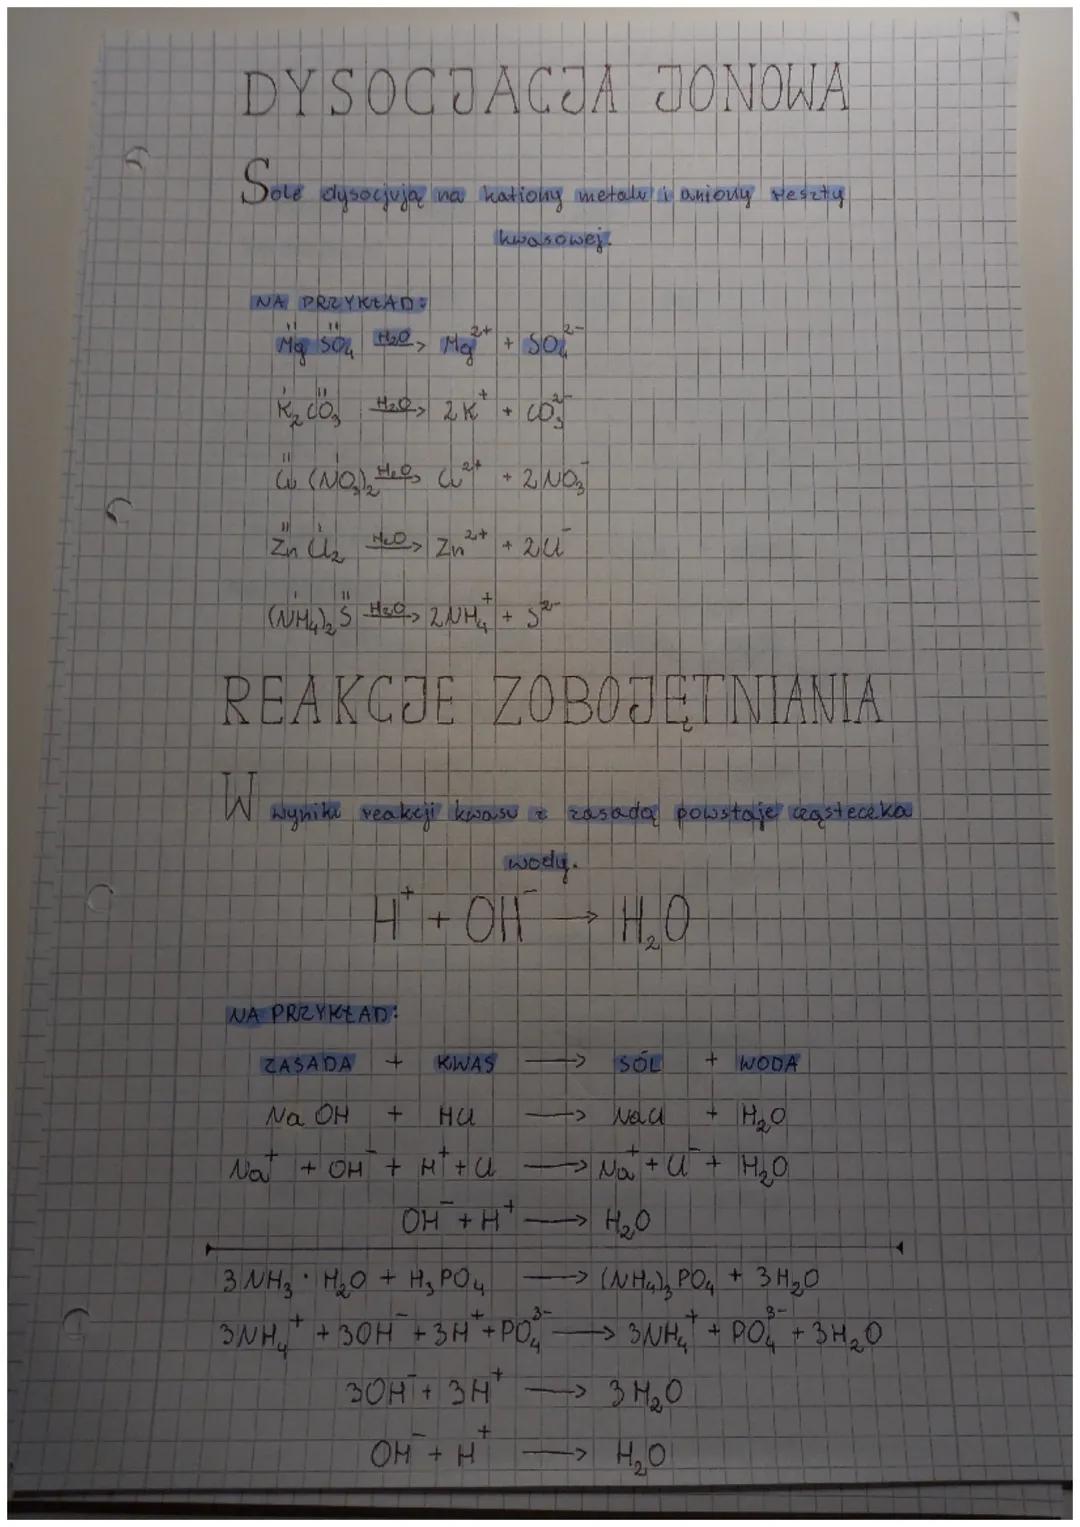 DYSOCJACJA JONOWA
Sole dysocjują na kationy metalu i aniony reszty
kwasowej.
NA PRZYKŁAD:
Mg SO₄ —H₂O→ Mg²⁺ + SO₄²⁻
K₂CO₃ —H₂O→ 2K⁺ + CO₃²⁻
Cu (NO₃)₂ —H₂O→ Cu²⁺ + 2NO₃⁻
Zn Cl₂ —H₂O→ Zn²⁺ + 2Cl⁻
(NH₄)₂S —H₂O→ 2NH₄⁺ + S²⁻
REAKCJE ZOBOJĘTNIANIA
W wyniku reakcji kwasu z zasadą powstaje cząsteczka
wody.
H⁺ + OH⁻ → H₂O
NA PRZYKŁAD:
ZASADA + KWAS → SÓL + WODA
NaOH + HCl → NaCl + H₂O
Na⁺ + OH⁻ + H⁺ + Cl → Na⁺ + Cl⁻ + H₂O
OH⁻ + H⁺ → H₂O
3NH₃ · H₂O + H₃PO₄ → (NH₄)₃PO₄ + 3H₂O
3NH₄⁺ + 3OH⁻ + 3H⁺ + PO₄³⁻ → 3NH₄⁺ + PO₄³⁻ + 3H₂O
3OH⁻ + 3H⁺ → 3H₂O
OH⁻ + H⁺ → H₂O